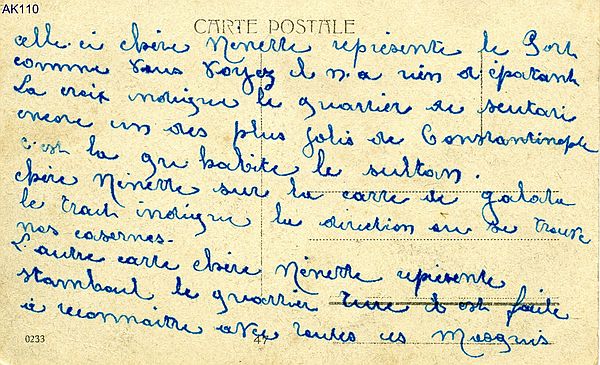 AK110
CARTE POSTALE
celle ci chère Ninette représente le Port
comme vous voyez il n.a rien d'épatant
La croix indique le quartier de scutari
encore un des plus jolis de Constantinople
c'est la qu habite le sultan.
chère Ninette sur la carte de galata
le trait indique la direction ou se trouve
nos casernes.
L'autre carte chère Ninette représente
stamboul le quartier turc il est facile
a reconnaitre avec toutes ces Mosquées
0233
47